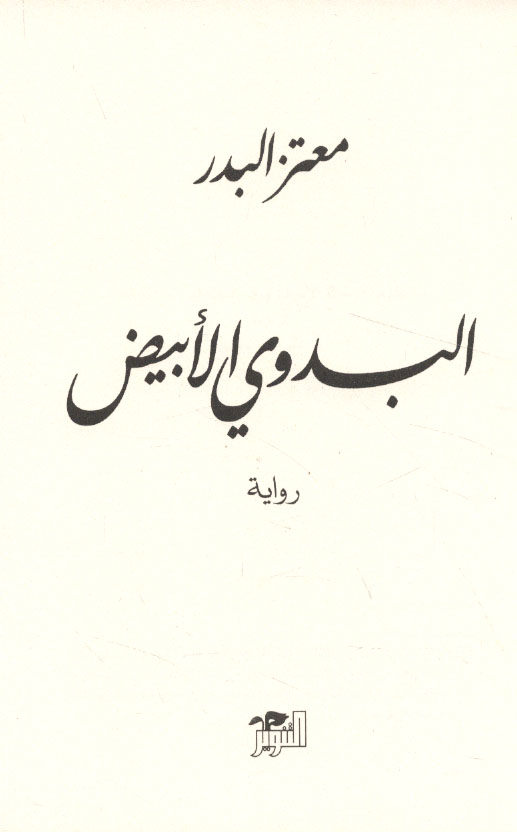 معتز البدر
البدوي الأبيض
رواية
التنوير